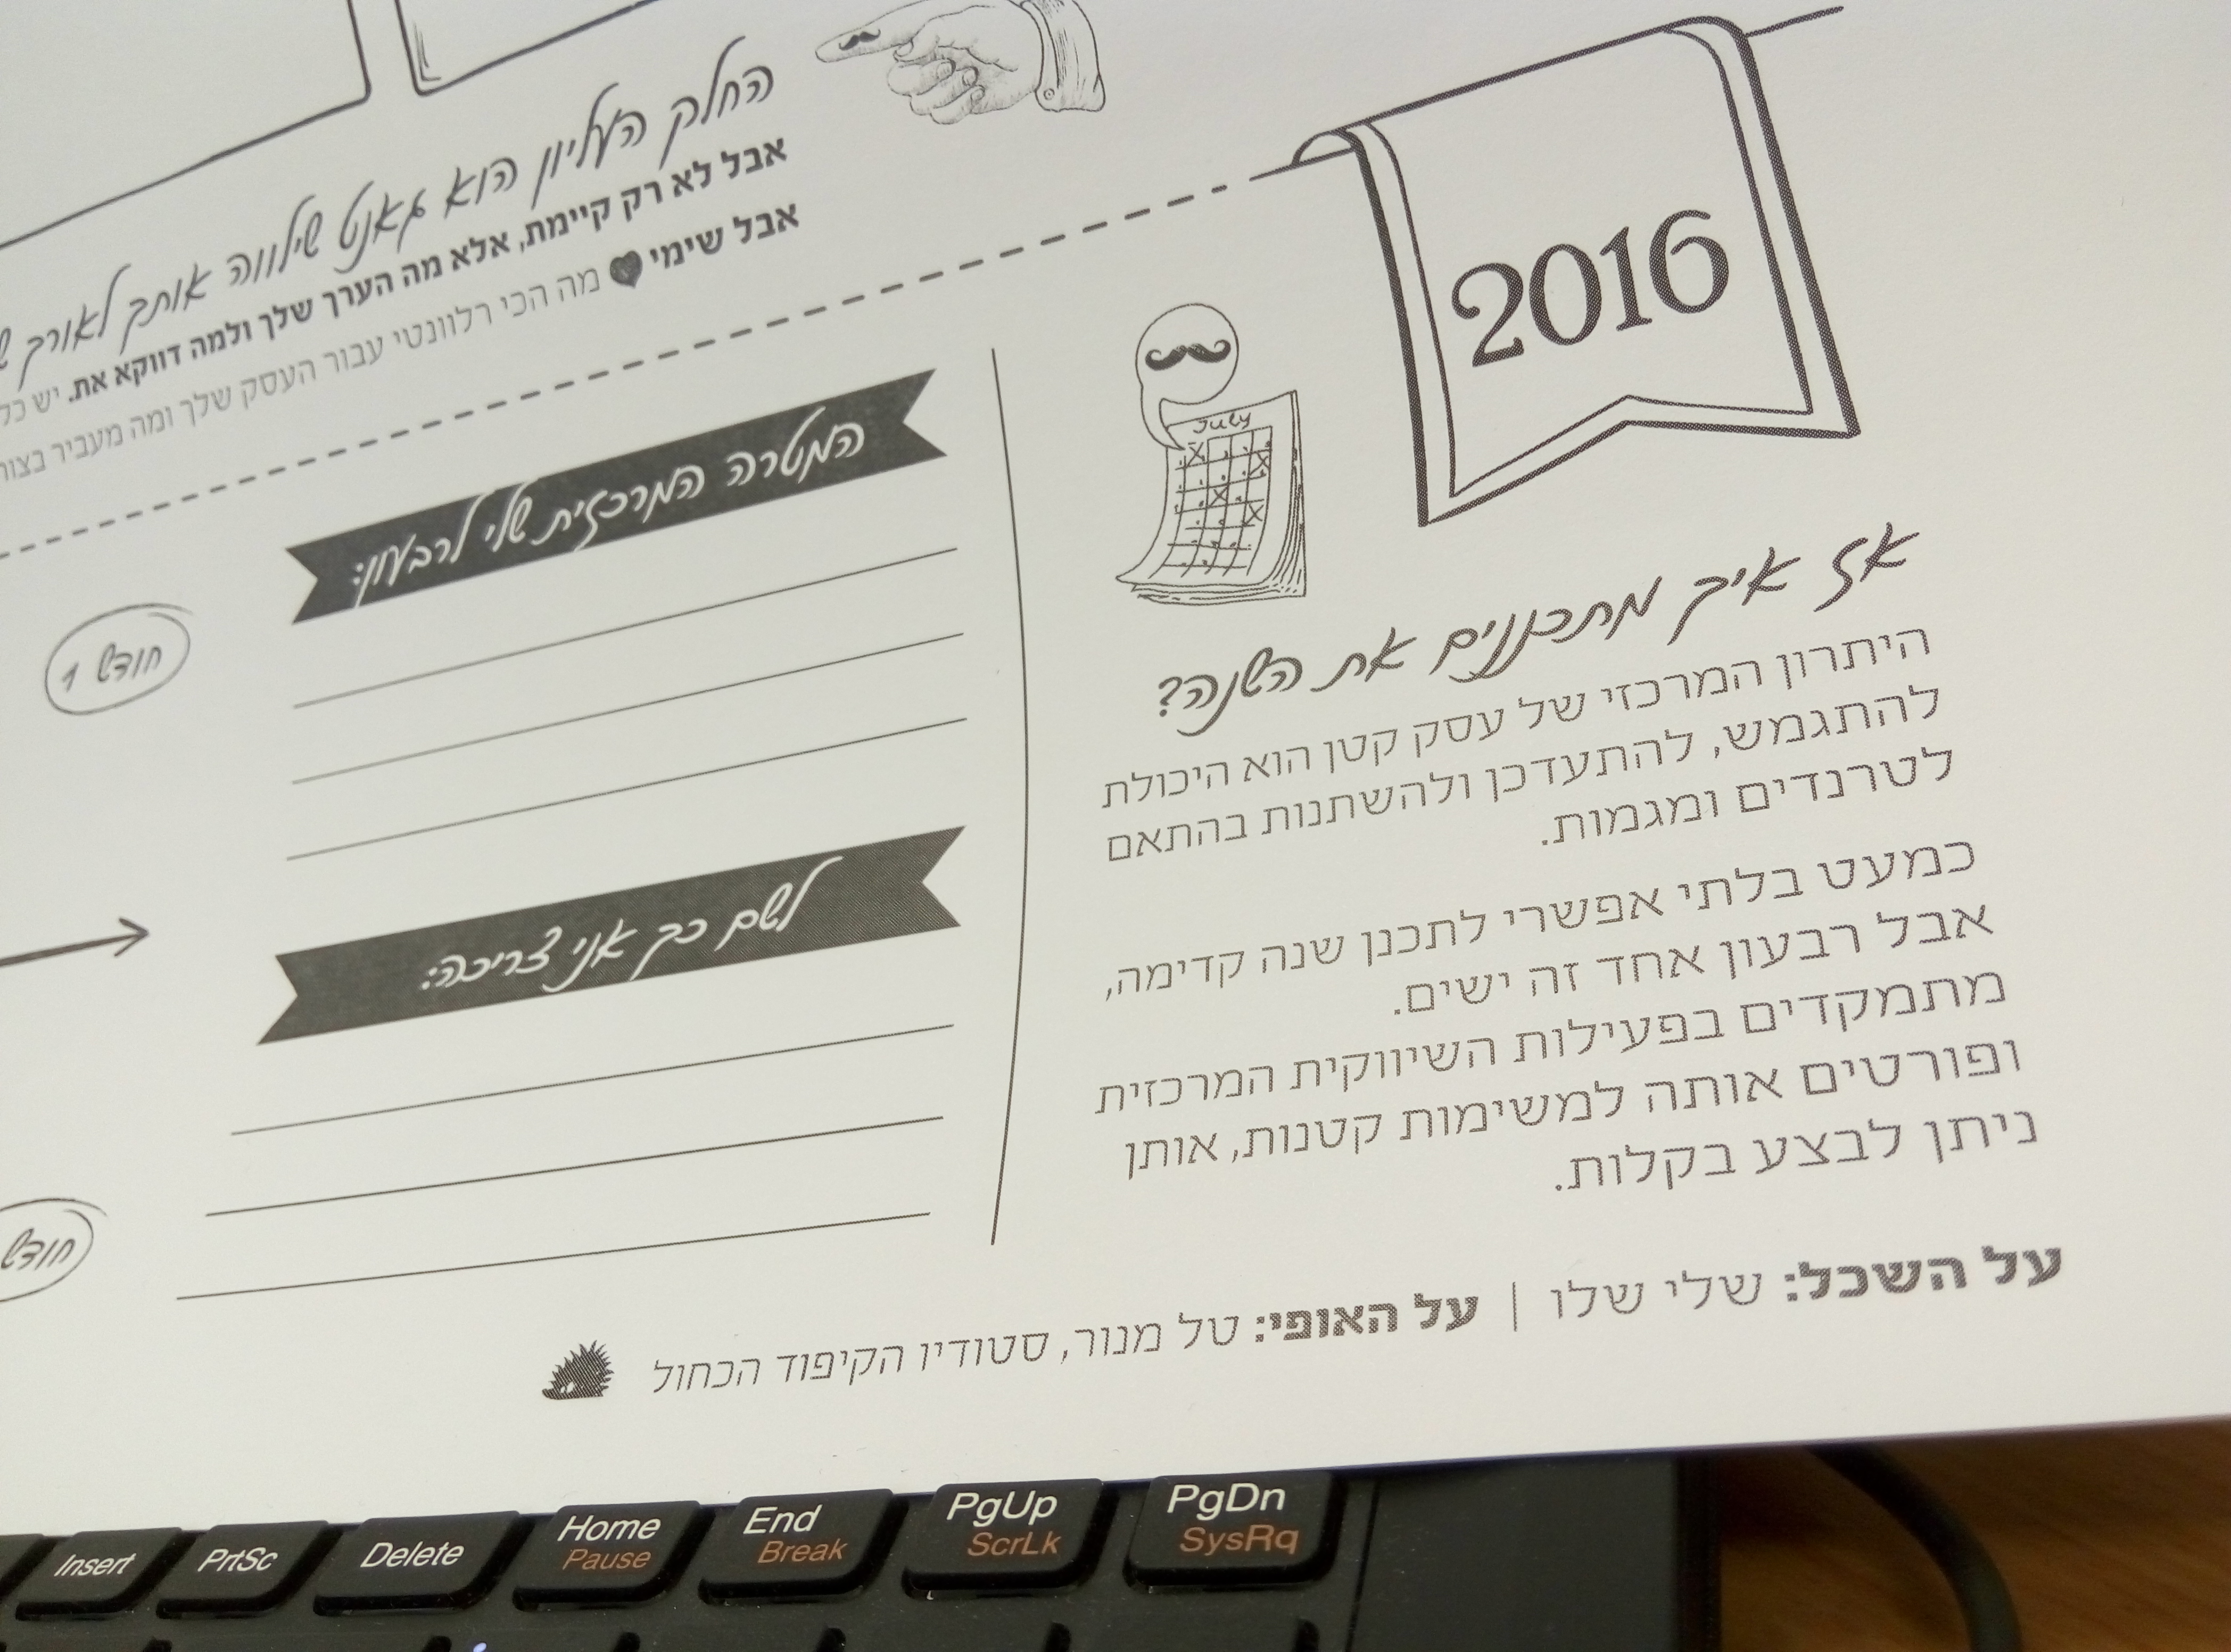 החלק העליון הוא גאנט שילווה אותך לאורך
אבל לא רק קיימת, אלא מה הערך שלך ולמה דווקא את. יש
אבל שימי ♥ מה הכי רלוונטי עבור העסק שלך ומה מעביר
2016
July
אז איך מתכננים את השנה?
היתרון המרכזי של עסק קטן הוא היכולת
להתגמש, להתעדכן ולהשתנות בהתאם
לטרנדים ומגמות.
כמעט בלתי אפשרי לתכנן שנה קדימה,
אבל רבעון אחד זה ישים.
מתמקדים בפעילות השיווקית המרכזית
ופורטים אותה למשימות קטנות, אותן
ניתן לבצע בקלות.
המטרה המרכזית שלי לרבעון:
לשם כך אני צריכה:
חודש 1
חודש
על השכל: שלי שלו | על האופי: טל מנור, סטודיו הקיפוד הכחול
Insert PrtSc Delete Home End PgUp PgDn
Pause Break ScrLk SysRq